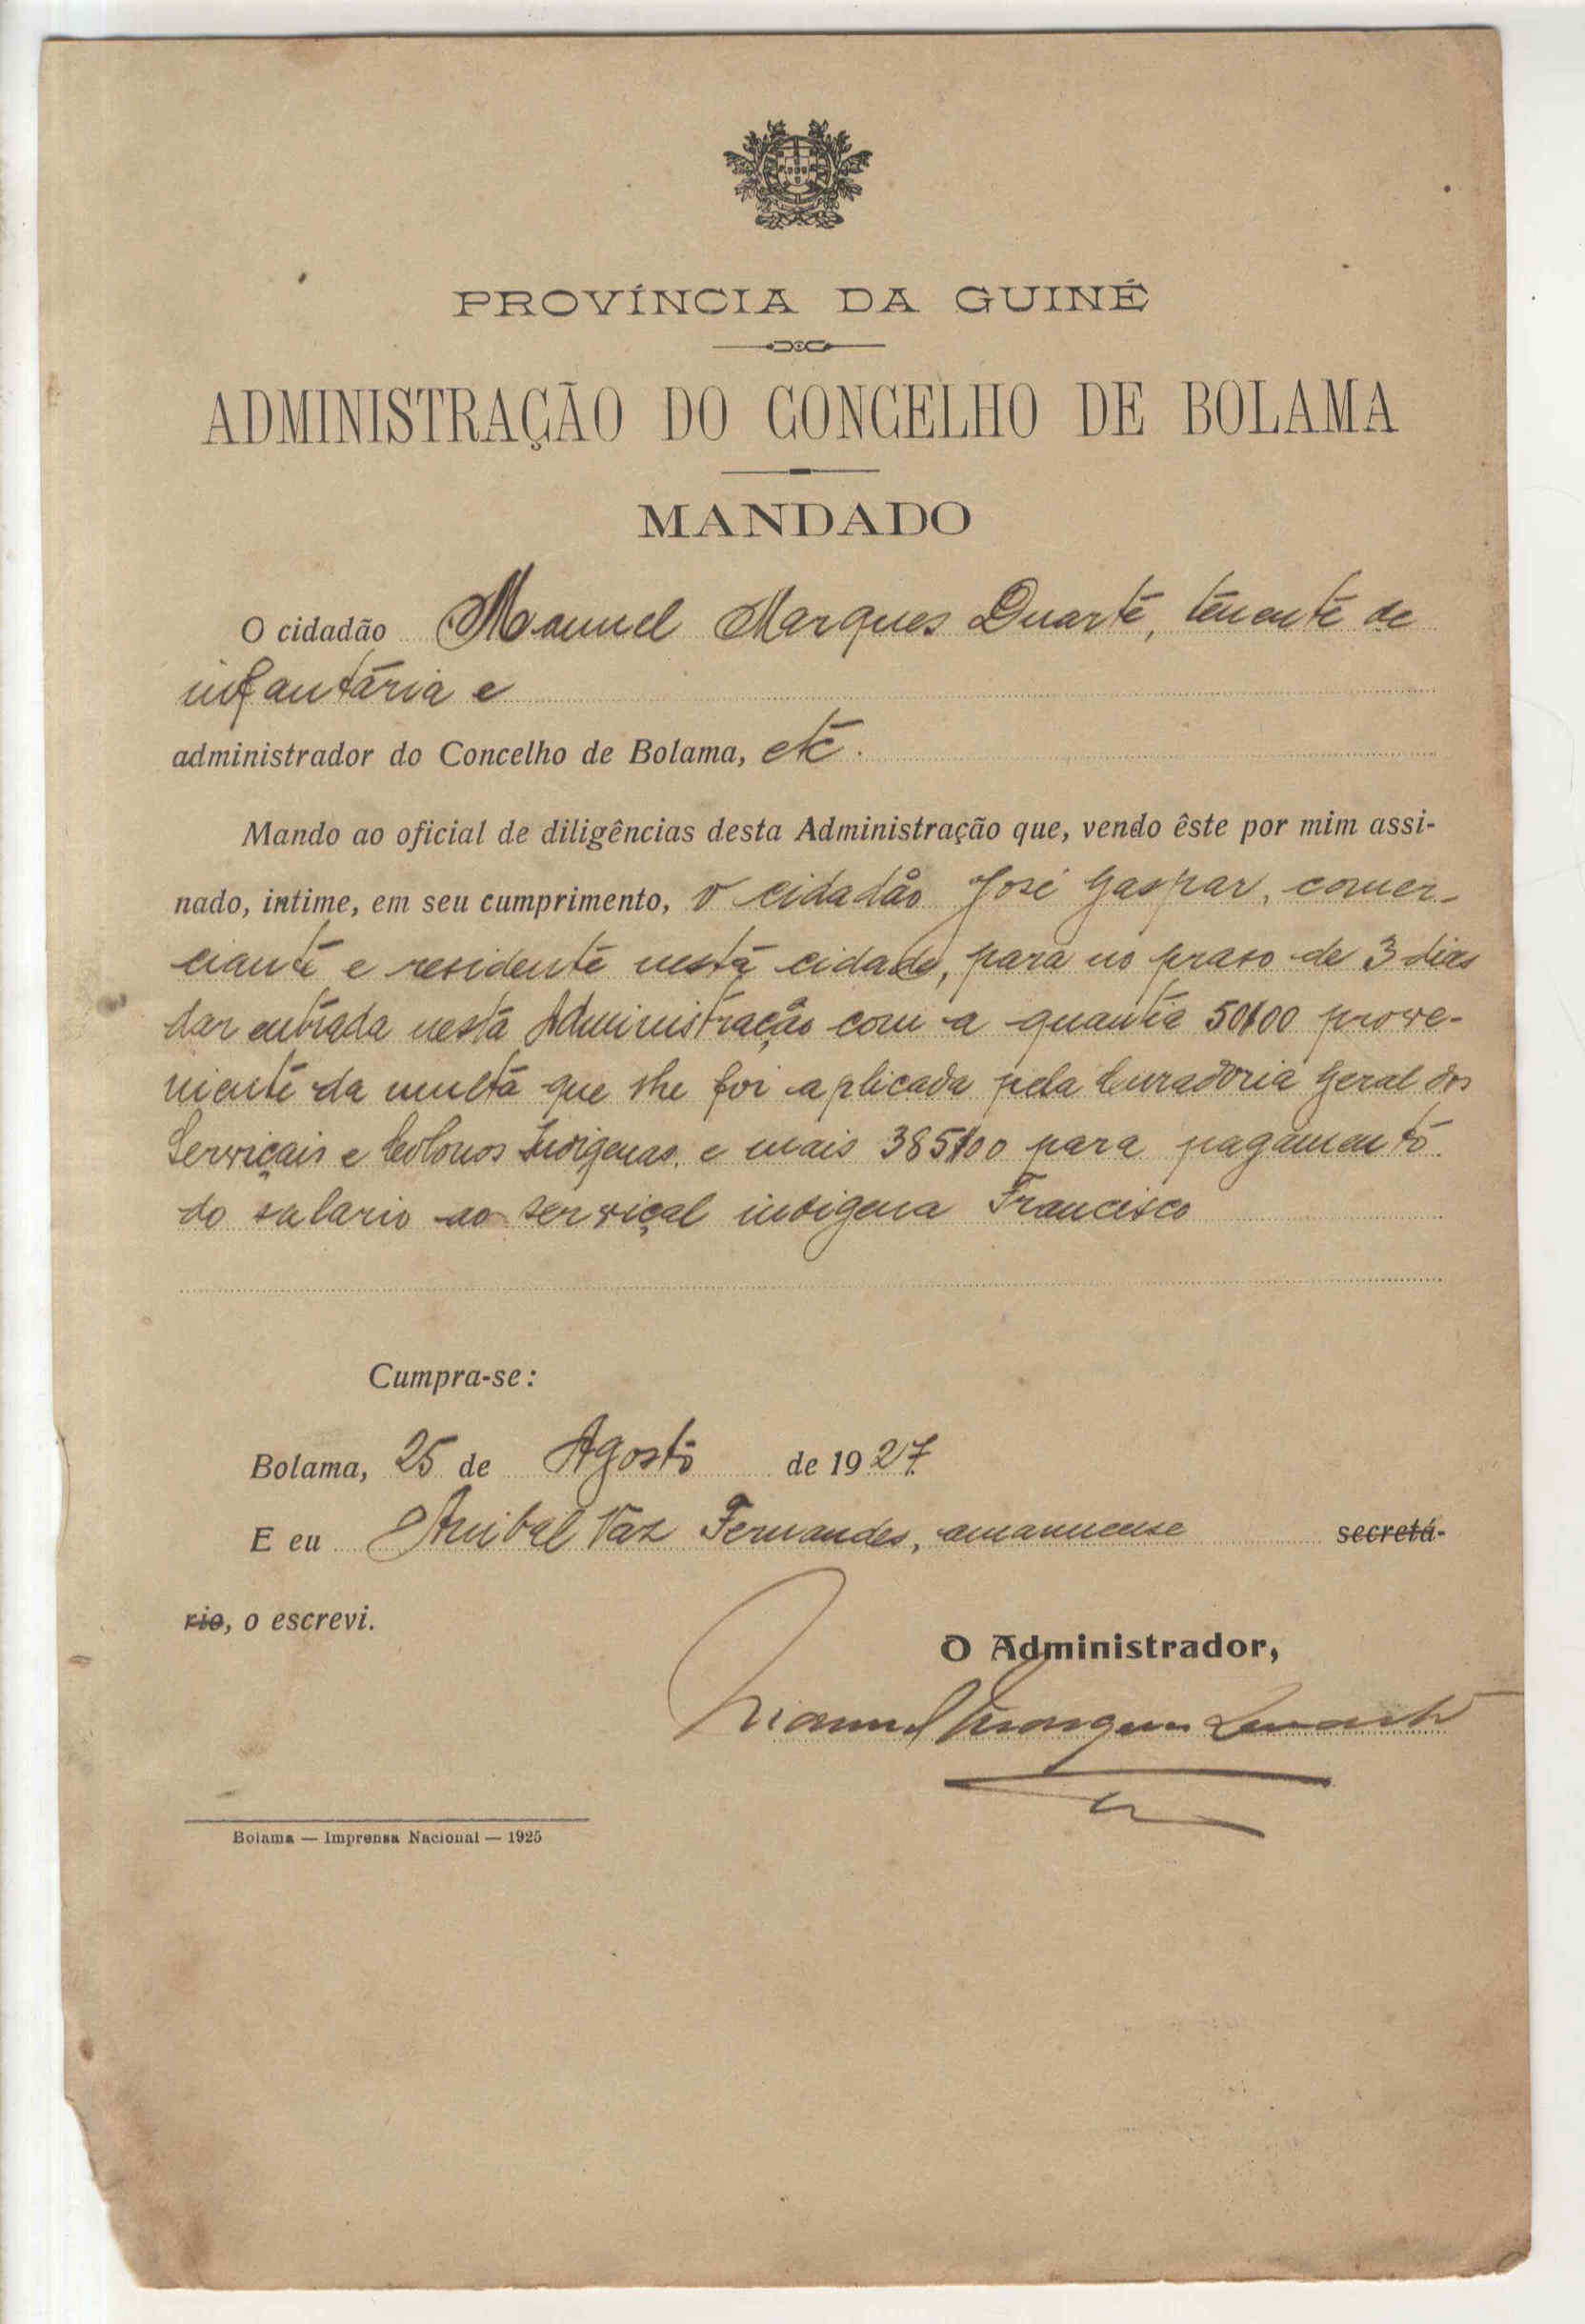 PROVÍNCIA DA GUINÉ
ADMINISTRAÇÃO DO CONCELHO DE BOLAMA
MANDADO
O cidadão Manuel Marques Duarte, tenente de
infantária e
administrador do Concelho de Bolama, etc.
Mando ao oficial de diligências desta Administração que, vendo êste por mim assi-
nado, intime, em seu cumprimento, o cidadão José Gaspar, comer-
ciante e residente nesta cidade, para no praso de 3 dias
dar entrada nesta Administração com a quantia 50$00 prove-
niente da multa que lhe foi aplicada pela Curadoria Geral dos
Serviçais e Colonos Indigenas, e mais 385$00 para pagamento
do salario ao serviçal indigena Francisco
Cumpra-se:
Bolama, 25 de Agosto de 1927
E eu Anibal Vaz Fernandes, amanuense secretá-
rio, o escrevi.
O Administrador,
Manuel Marques Duarte
Bolama — Imprensa Nacional — 1925